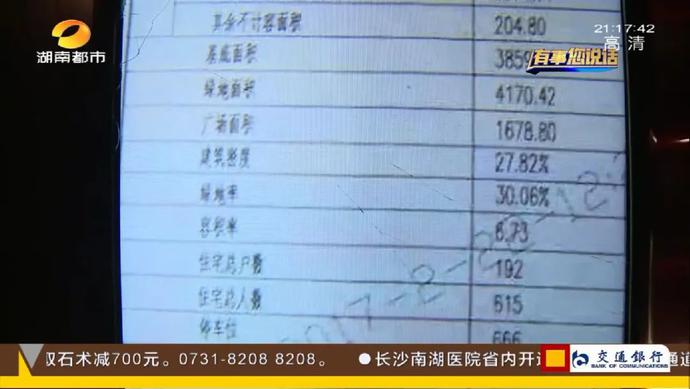 湖南都市
21:17:42
高清
有事您说话
其余不计容面积 204.80
基底面积 3859
绿地面积 4170.42
广场面积 1678.80
建筑密度 27.82%
绿地率 30.06%
容积率 6.73
住宅总户数 192
住宅总人数 615
停车位 666
石术减700元。0731-8208 8208。
●长沙南湖医院省内开通
交通银行
BANK OF COMMUNICATIONS